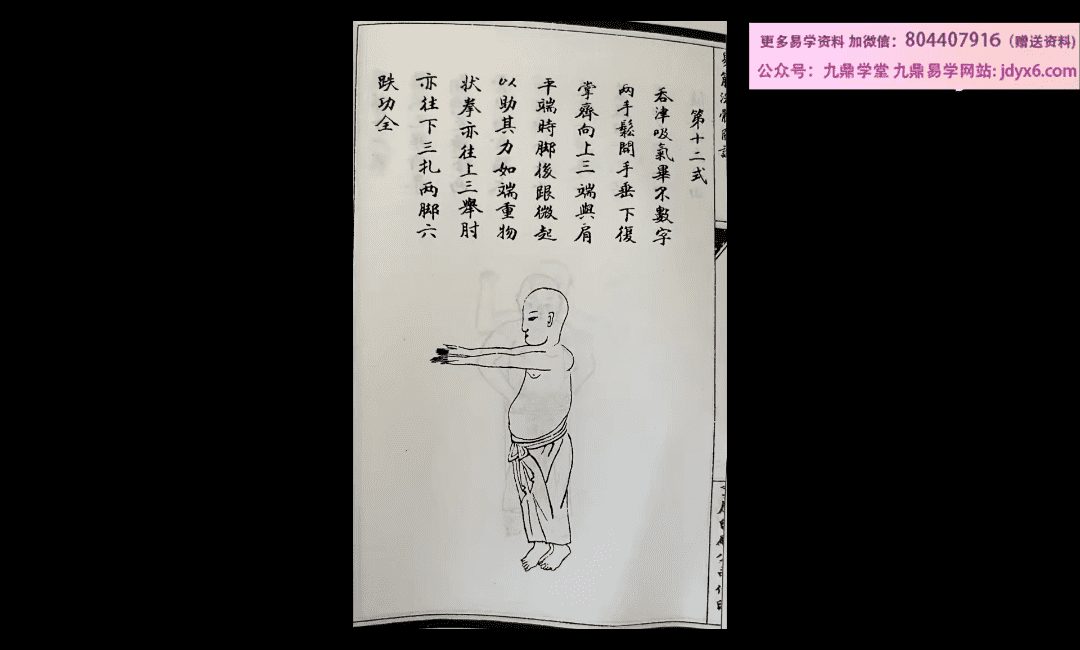 更多易学资料 加微信：804407916（赠送资料)
公众号：九鼎学堂 九鼎易学网站: jdyx6.com
第十二式
吞津吸氣畢不數字
兩手鬆開手垂下復
掌齊向上三端與肩
平端時脚後跟微起
以助其力如端重物
狀拳亦往上三舉肘
亦往下三扎两脚六
跌功全